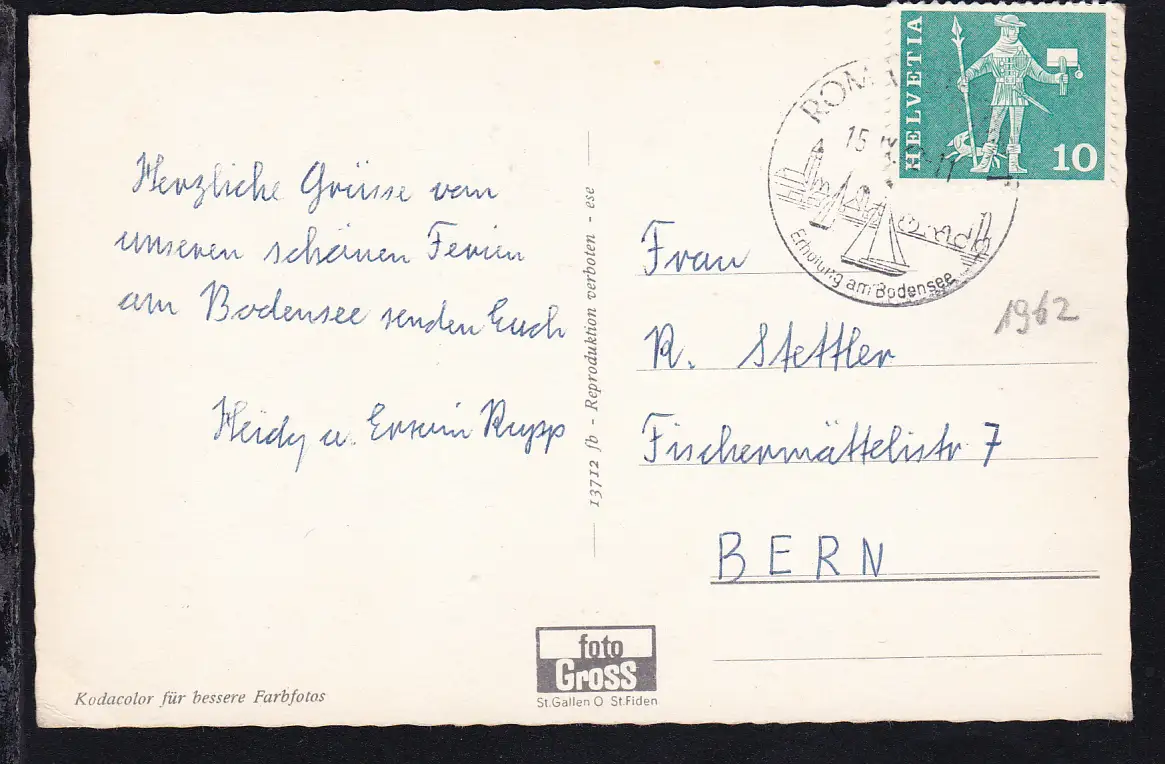 Herzliche Grüsse von
unseren schönen Ferien
am Bodensee senden Euch
Heidy u. Erwin Rupp
Kodacolor für bessere Farbfotos
13712 fb - Reproduktion verboten - ese
foto
Gross
St.Gallen O St.Fiden
HELVETIA
10
15
Erholung am Bodensee
1962
Frau
R. Stettler
Fischermättelistr 7
BERN